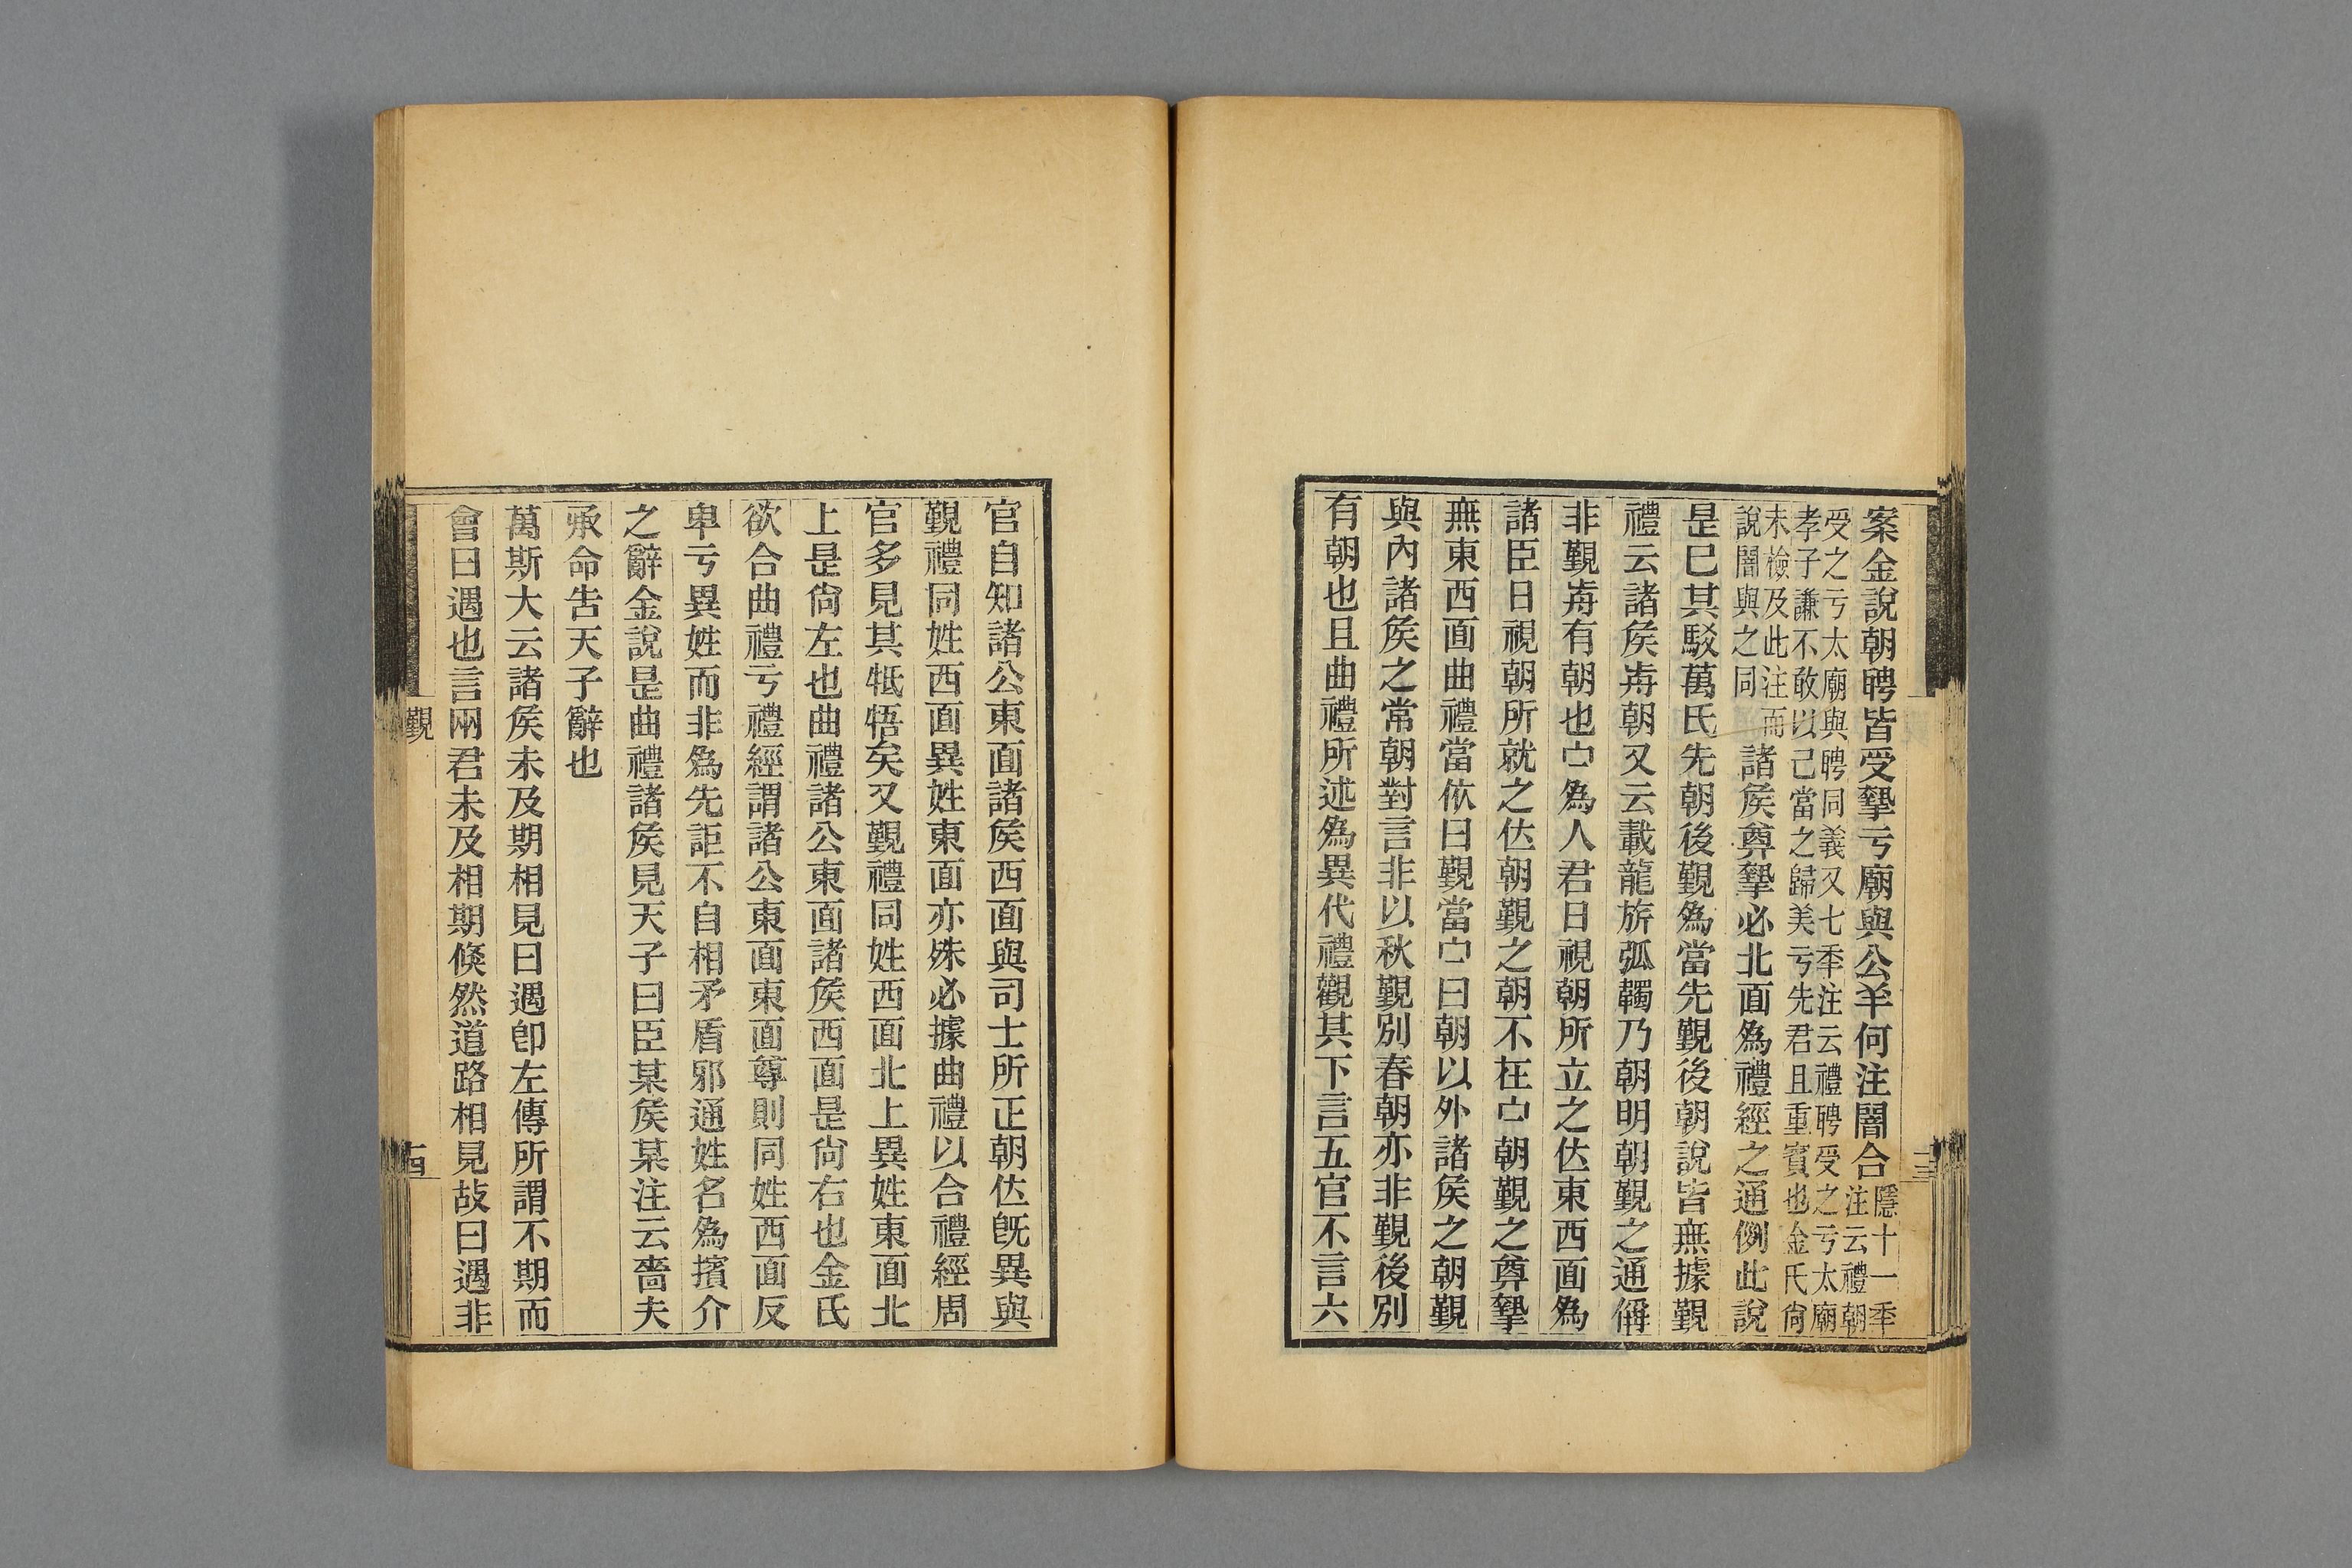 案金說朝聘皆受摯亏廟與公羊何注闇合隱十一秊注云禮朝
受之亏太廟與聘同義又七秊注云禮聘受之亏太廟
孝子謙不敢以己當之歸美亏先君且重賓也金氏尙
未檢及此注而說闇與之同諸矦尊摯必北面爲禮經之通例此說
是巳其駁萬氏先朝後覲爲當先覲後朝說皆無據覲
禮云諸矦歬朝又云載龍旂弧韣乃朝明朝覲之通偁
非覲歬有朝也宁爲人君日視朝所立之位東西面爲
諸臣日視朝所就之位朝覲之朝不在宁朝覲之尊摯
無東西面曲禮當依曰覲當宁曰朝以外諸矦之朝覲
與內諸矦之常朝對言非以秋覲別春朝亦非覲後別
有朝也且曲禮所述爲異代禮觀其下言五官不言六
十三
官自知諸公東面諸矦西面與司士所正朝位旣異與
覲禮同姓西面異姓東面亦殊必據曲禮以合禮經周
官多見其牴牾矣又覲禮同姓西面北上異姓東面北
上是尙左也曲禮諸公東面諸矦西面是尙右也金氏
欲合曲禮亏禮經謂諸公東面東面尊則同姓西面反
卑亏異姓而非爲先詎不自相矛盾邪通姓名爲擯介
之辭金說是曲禮諸矦見天子曰臣某矦某注云嗇夫
承命告天子辭也
萬斯大云諸矦未及期相見曰遇卽左傳所謂不期而
會曰遇也言兩君未及相期倏然道路相見故曰遇非
覲
十四